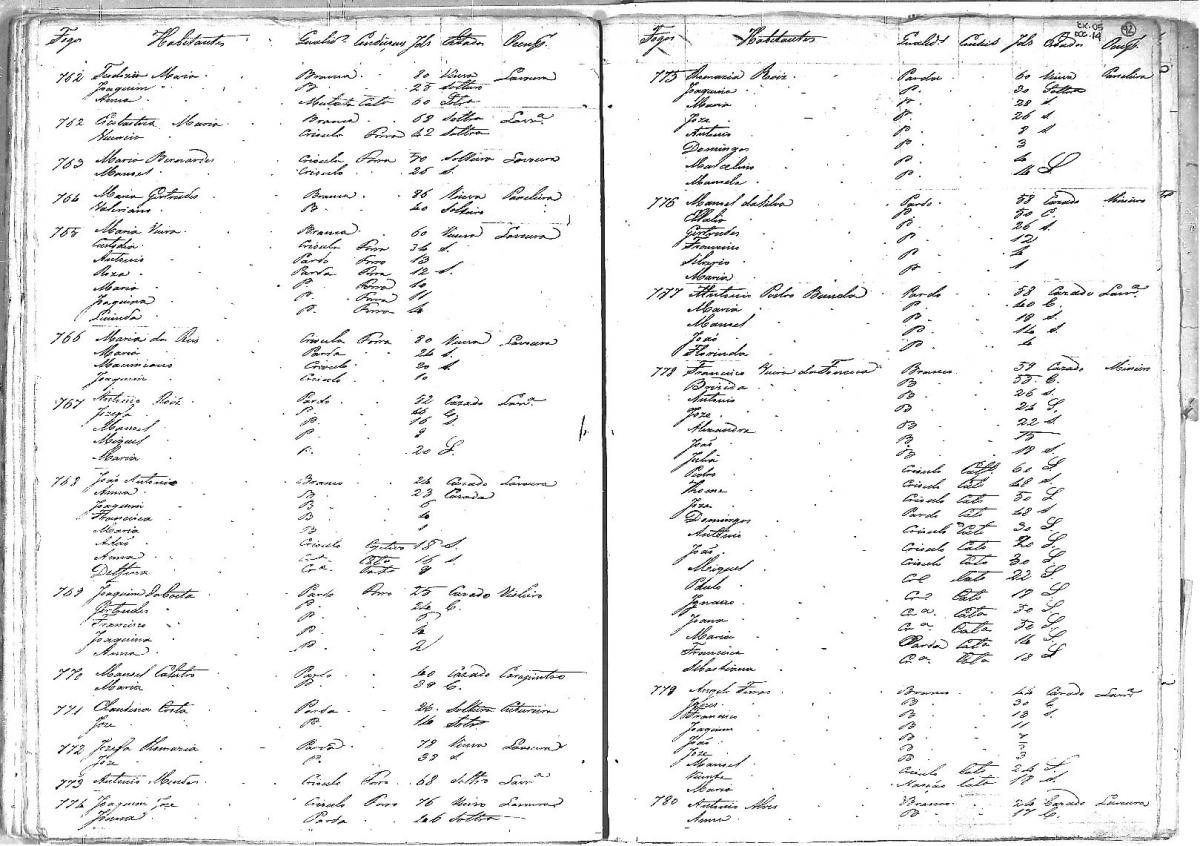 Fogos Habitantes Qualid.s Condiçoens Id.s Estados Occup.
762 Maria Branca 80 Viuva Lavoura
Joaquim B. 25 Solteiro
Anna 60
762 Maria Branca 68 Solt.ra Lavr.a
Crioula Forra 42 Solt.ra
763 Maria Bernardes Crioula Forra 70 Solteira Lavoura
Manoel Crioulo 25 S.
764 Maria Gertrudes Branca 86 Viuva
Valeriano B. 40 Solteiro
765 Maria Vieira Branca 60 Viuva Lavoura
Custodia Crioula Forra 34 S.
Antonio Pardo Forro 13
Roza Parda Forra 12 S.
Maria P. Forra 10
Joaquina P. Forra 11
P. Forra 4
766 Maria da Crioula Forra 80 Viuva Lavoura
Maria Parda 24 S.
Maximiano Crioulo 20 S.
Joaquim Crioulo 10
767 Antonio Roiz Pardo 52 Cazado Lavr.a
Jozefa P. 46 C.
Manoel P. 16 S.
Miguel P. 8
Maria P. 20 S.
768 João Antonio Branco 26 Cazado Lavoura
Anna B. 23 Cazada
Joaquim B. 5
Francisca B. 4
Maria B. 1
Adão Crioulo Cativo 18 S.
Anna Cr.a Cata 16 S.
Delfina Cr.a Cata 9
769 Joaquim da Costa Pardo Forro 25 Cazado
Gertrudes P. 24 C.
Francisco P. 5
Joaquina P. 4
Anna P. 2
770 Manoel Pardo 40 Cazado Carapinteiro
Maria P. 39 C.
771 Claudina Costa Parda 26 Solteira Costureira
Joze P. 14 Solt.o
772 Jozefa Parda 78 Viuva Lavoura
Joze P. 32 S.
773 Antonio Mendes Crioulo Forro 68 Solt.ro Lavr.a
774 Joaquim Joze Crioulo Forro 76 Viuvo Lavoura
Joanna Parda 46 Solt.ra
CX-05
DOC-14
12
Fogos Habitantes Qualid.s Condiç. Id.s Estados Occup.
775 Roiz Parda 60 Viuva
Joaquina P. 30 Solt.ra
Maria P. 28 S.
Joze P. 26 S.
Antonio P. 8 S
Domingos P. 3
Marcelino P. 4
Manoela P. 14 S
776 Manoel da Silva Pardo 58 Cazado Mineiro
P. 50 C.
Gertrudes P. 26 S.
Francisco P. 12
Silverio P. 4
Maria P. 1
777 Antonio Pedro Pardo 58 Cazado Lavr.a
Maria P. 40 C.
Manoel P. 19 S.
João P. 14 S.
Florinda P. 4
778 Francisco Vieira da Fonceca Branco 59 Cazado Mineiro
Brizida B 55 C.
Antonio B 26 S.
Joze B 24 S.
Alexandre B 22 S.
João B. 15
Julia B. 19 S.
Pedro Crioulo Cat.o 60 S
Thome Crioulo Cato 48 S.
Joze Crioulo Cato 50 S
Domingos Pardo Cato 48 S
Antonio Crioulo Cato 30 S.
João Crioulo Cato 20 S.
Miguel Crioulo Cato 30 S.
Paulo Cr.l Cato 22 S
Januario Cr.o Cato 19 S
Joana Cr.a Cata 50 S.
Maria Cr.a Cata 50 S.
Francisca Parda Cata 16 S.
Sebastiana Cr.a Cata 18 S
779 Angelo Branco 44 Cazado Lavr.a
B 30 C
Francisco B. 13 S.
Joaquim B 11
João B
Joze B
Manoel B 3
Vicente Crioulo Cato 26 S
Maria Cata 19 S.
780 Antonio Alves Branco 24 Cazado Lavoura
Anna B. 17 C.